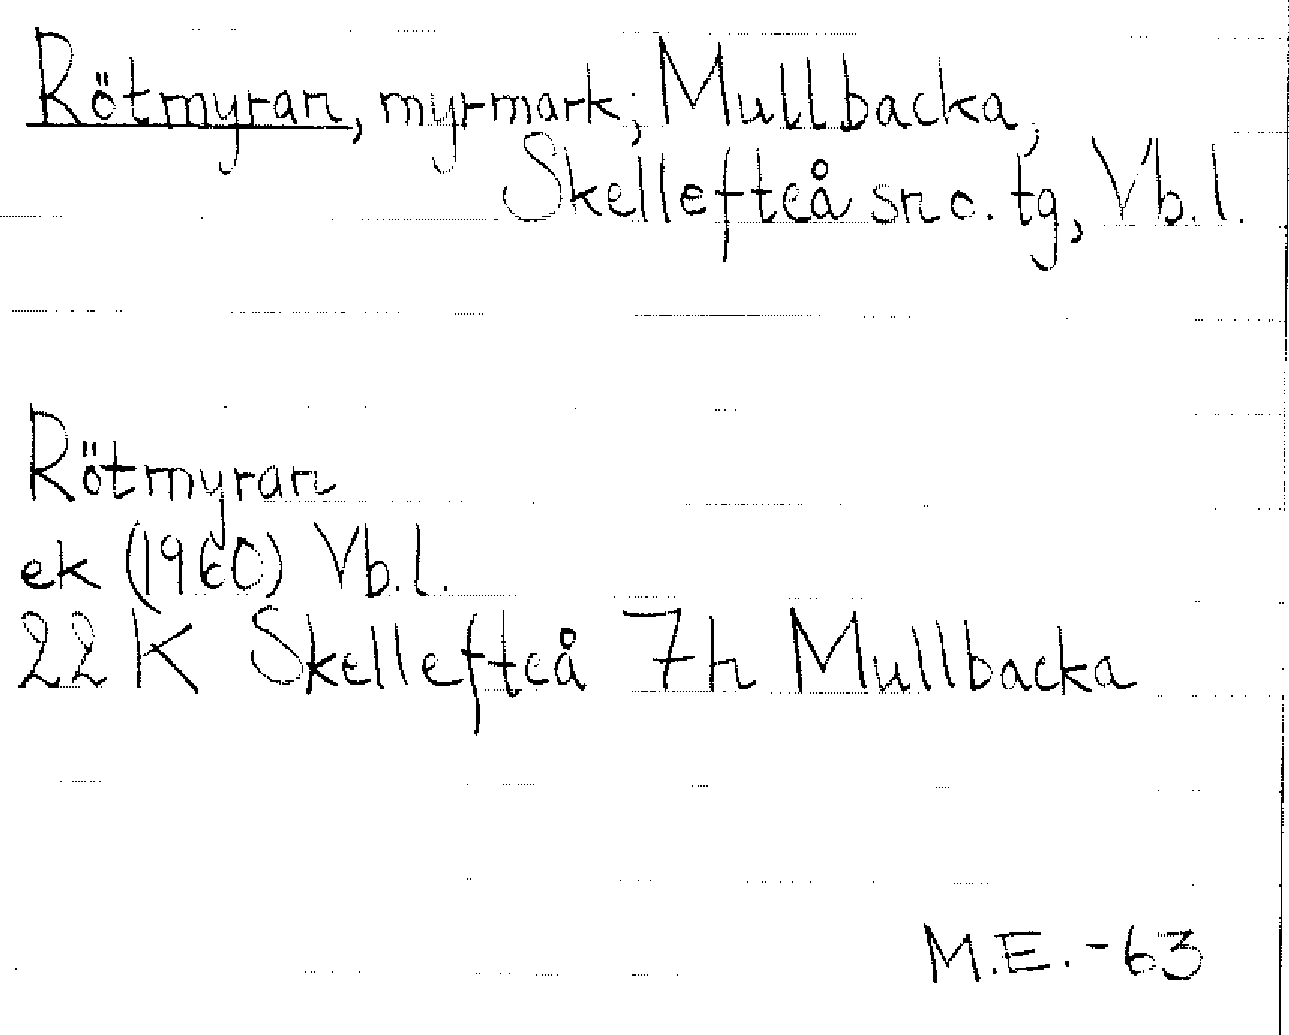 Rötmyran, myrmark; Mullbacka,
Skellefteå sn o. tg, Vb. l.
Rötmyran
ek (1960) Vb. l.
22 K Skellefteå 7h Mullbacka
M.E. -63